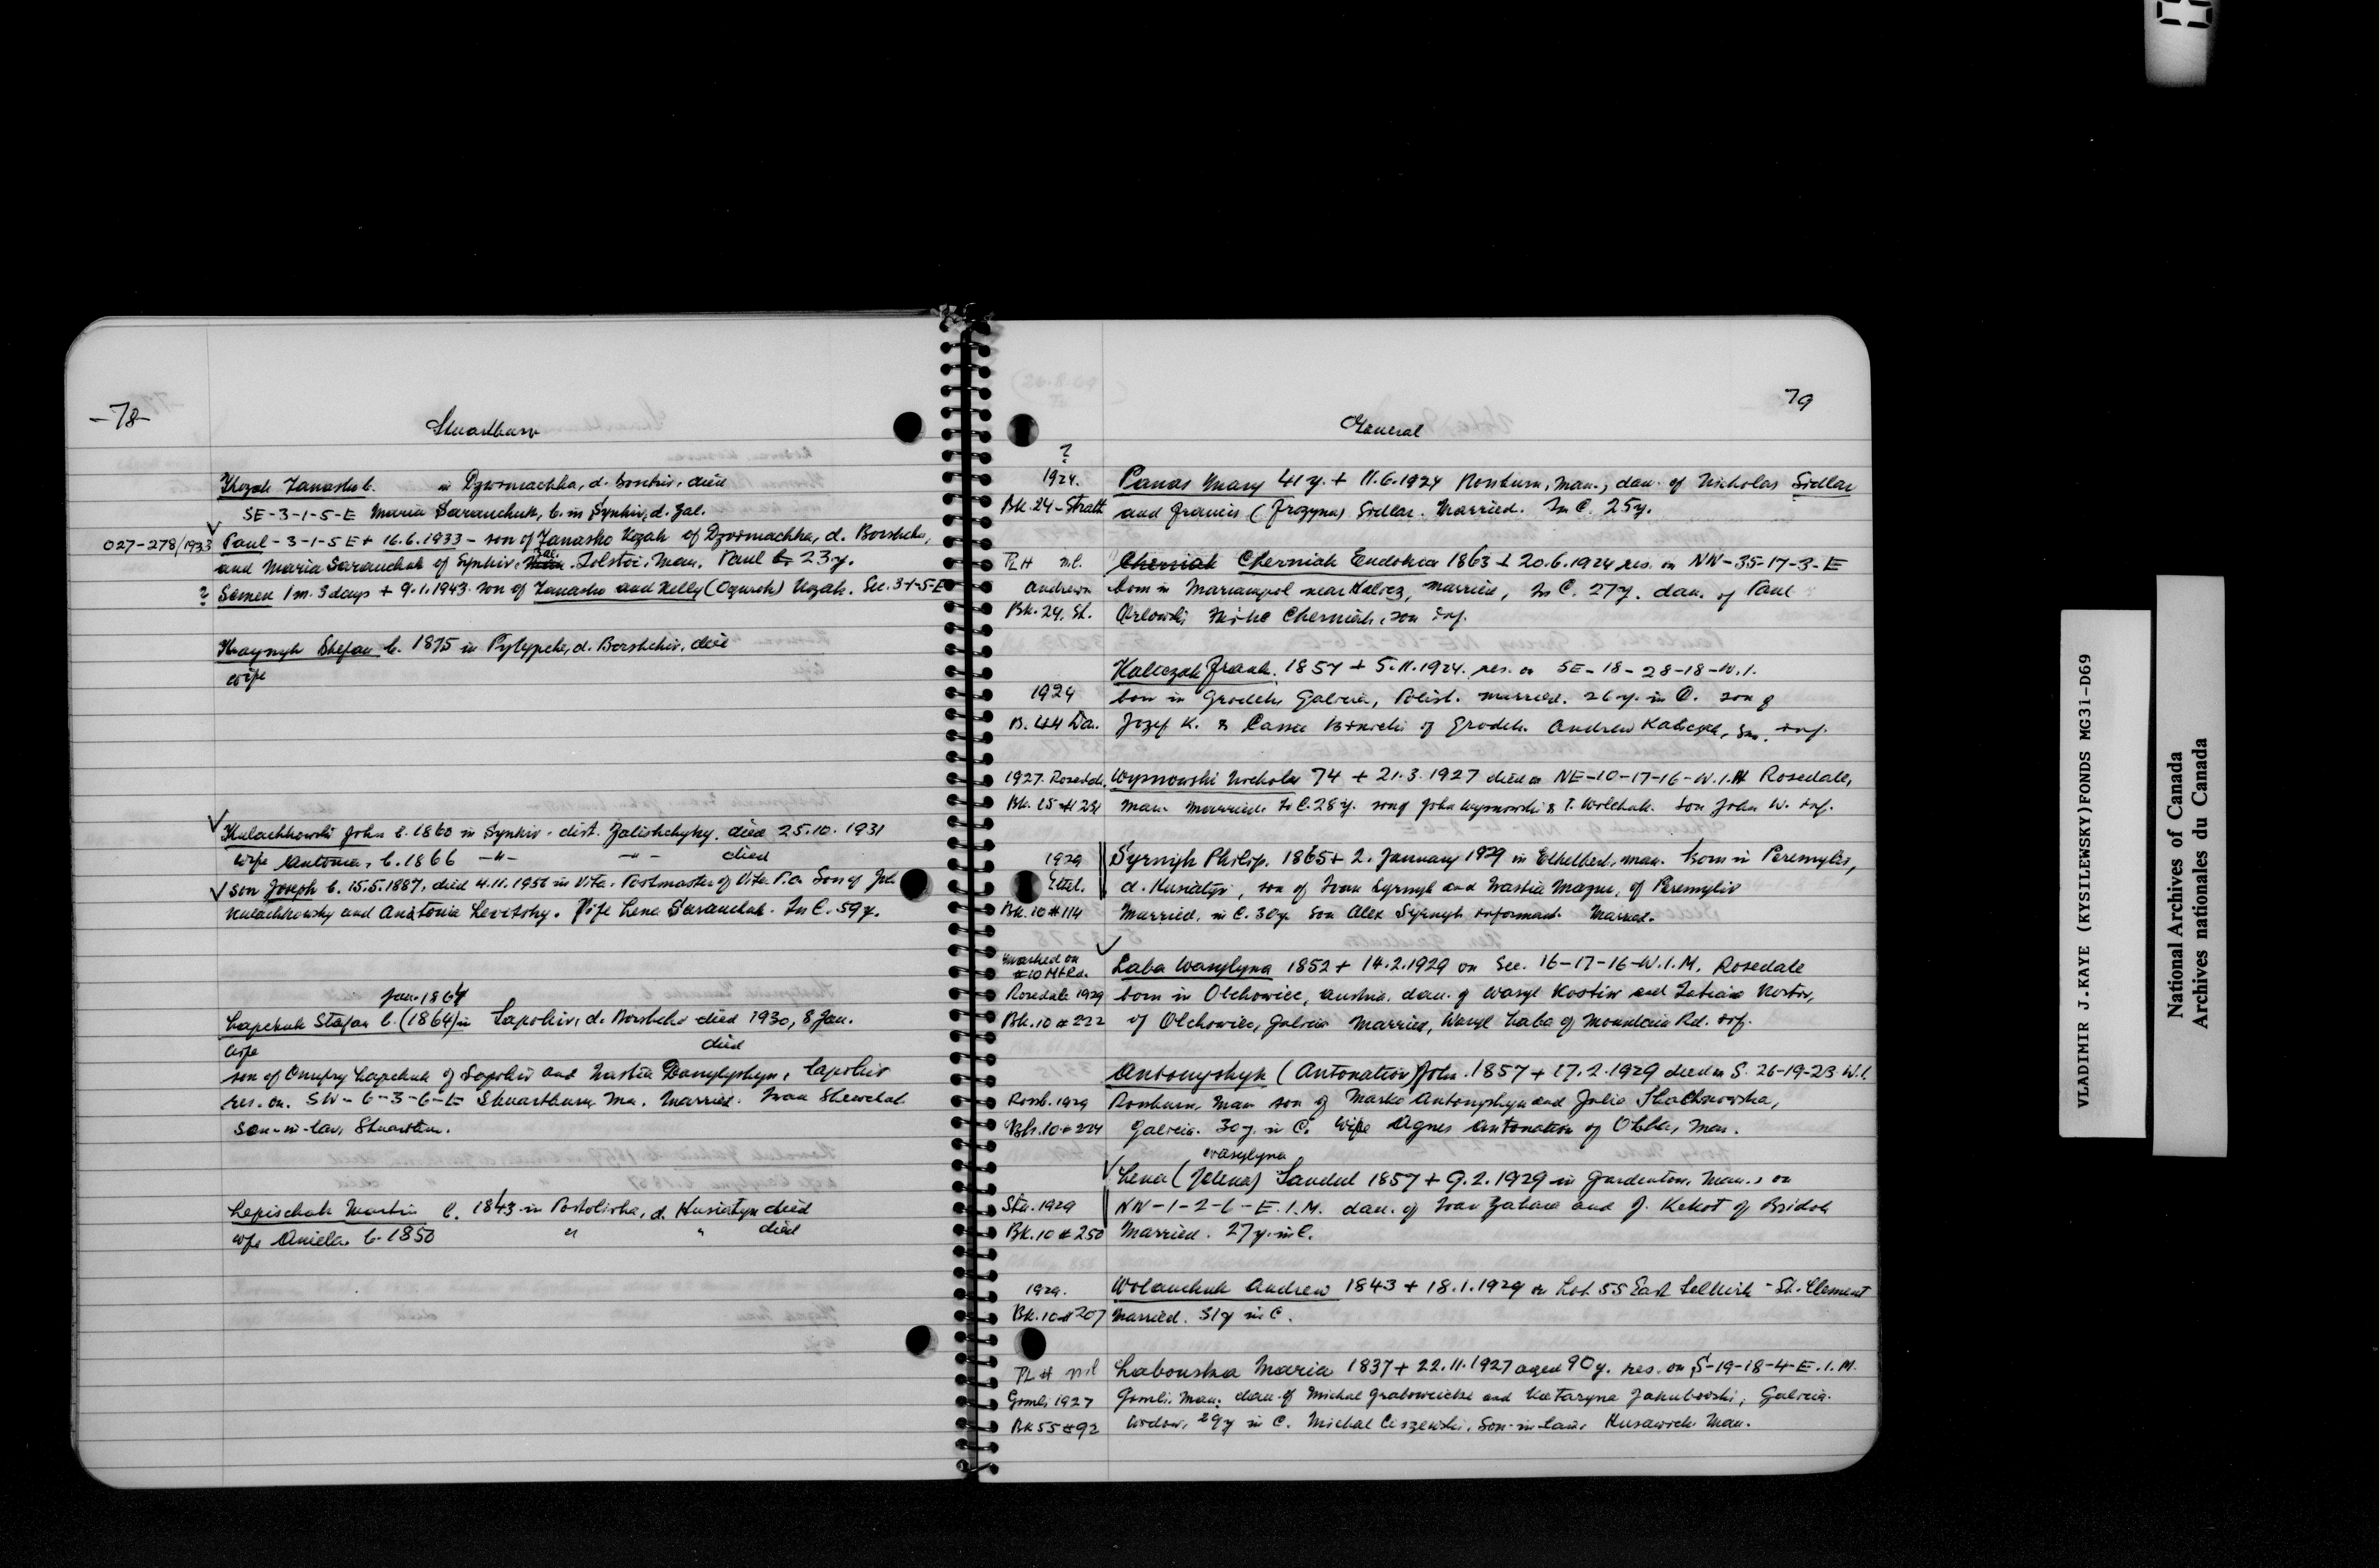 -78-
Stuartburn
Kozak Tanasko b. in Dzwomachka, d. Borshiv, died
SE-3-1-5-E Maria Saranchuk, b. in Synkiv, d. Zal.
027-278/1933 Paul - 3-1-5 E + 16.6.1933 - son of Tanasko Kozak of Dzwomachka, d. Borshchiv,
and Maria Saranchuk of Synkiv, Zal. Tolstoi, Man. Paul 23 y.
? Semen 1 m. 3 days + 9.1.1943. son of Tanasko and Nelly (Ogurok) Kozak. Sec. 3-1-5-E
Kraynyk Stefan b. 1875 in Pylypche, d. Borshchiv, died
wife
Kulachkowski John b. 1860 in Synkiv. dist. Zalishchyky. died 25.10.1931
wife Antonia, b. 1866 -"- -"- died
son Joseph b. 15.5.1887, died 4.11.1956 in Vita. Postmaster of Vita P.O. Son of John
Kulachkowsky and Anatonia Levitsky. Wife Lena Saranchuk. In C. 59 y.
Jan. 1864
Lapchuk Stefan b. (1864) in Lapokiv, d. Borshchiv died 1930, 8 Jan.
wife died
son of Onufry Lapchuk of Sapohiv and Nastia Danylyshyn, Sapohiv
res. on. SW-6-3-6-E Stuartburn Ma. Married. Ivan Shewchuk
son-in-law, Stuartburn.
Lepischak Martin b. 1843 in Postolivka, d. Husiatyn died
wife Aniela. b. 1850 " " died
79
General
?
1924. Panas Mary 41 y. + 11.6.1924 Rossburn, Man., dau. of Nicholas Sidlar
Bk. 24-Strath and Francis (Frozyna) Sidlar. Married. In C. 25 y.
TL# nil. Cherniak Cherniak Eudokia 1863 + 20.6.1924 res. on NW-35-17-3-E
Andrews born in Mariampol near Halicz, married, In C. 27 y. dau. of Paul
Bk. 24. St. Orlowski Mike Cherniak, son inf.
Kaliczak Frank. 1857 + 5.11.1924. res. on SE-18-28-18-W.1.
1924 born in Grodek Galicia, Polish. married. 26 y. in C. son of
B. 44 Da. Jozef K. & Cassie of Grodek. Andrew Kaliczak, Son. inf.
1927. Rosedale. Wysnowski Nicholas 74 + 21.3.1927 died on NE-10-17-16-W.1.M Rosedale,
Bk. 15 # 231 Man. Married. In C. 28 y. son of John Wysnowski & T. Wolchuk. Son John W. inf.
1929 Syrnyk Philip. 1865 + 2. January 1929 in Ethelbert, Man. born in Peremyliv,
Ethel. d. Husiatyn, son of Ivan Syrnyk and Nastia Mazur, of Peremyliv
Bk. 10 # 114 Married, in C. 30 y. Son Alex Syrnyk informant. Married.
Marked on
#10 Mt Rd. Laba Wasylyna 1852 + 14.2.1929 on Sec. 16-17-16-W.1.M. Rosedale
Rosedale 1929 born in Olchowiec, Austria. dau. of Wasyl Kostiw and Tatiana Kostiw,
Bk. 10 # 222 of Olchowiec, Galicia Married, Wasyl Laba of Mountain Rd. inf.
Antonyshyn (Antonation) John. 1857 + 17.2.1929 died on S. 26-19-23 W.1.
Rossb. 1929 Rossburn, Man son of Marko Antonyshyn and Julia Skachkowska,
Bk. 10 # 224 Galicia. 30 y. in C. Wife Agnes Antonation of Olha, Man.
Wasylyna
Lena (Jelena) Sandul 1857 + 9.2.1929 in Gardenton, Man., on
Stu. 1929 NW-1-2-6-E.1.M. dau. of Ivan Zahara and J. Kekot of Bridok
Bk. 10 # 250 Married. 27 y. in C.
1929. Wolanchuk Andrew 1843 + 18.1.1929 on Lot 55 East Selkirk - St. Clement
Bk. 10 # 207 Married. 31 y in C.
TL # nil Labouska Maria 1837 + 22.11.1927 aged 90 y. res. on S-19-18-4-E.1.M.
Gimli 1927 Gimli, Man. dau. of Michal and Kataryna Jakubowski, Galicia.
Bk 55 # 92 widow, 29 y in C. Michal Ciszewski, son-in-law, Husawick Man.
VLADIMIR J. KAYE (KYSILEWSKY) FONDS MG31-D69
National Archives of Canada
Archives nationales du Canada